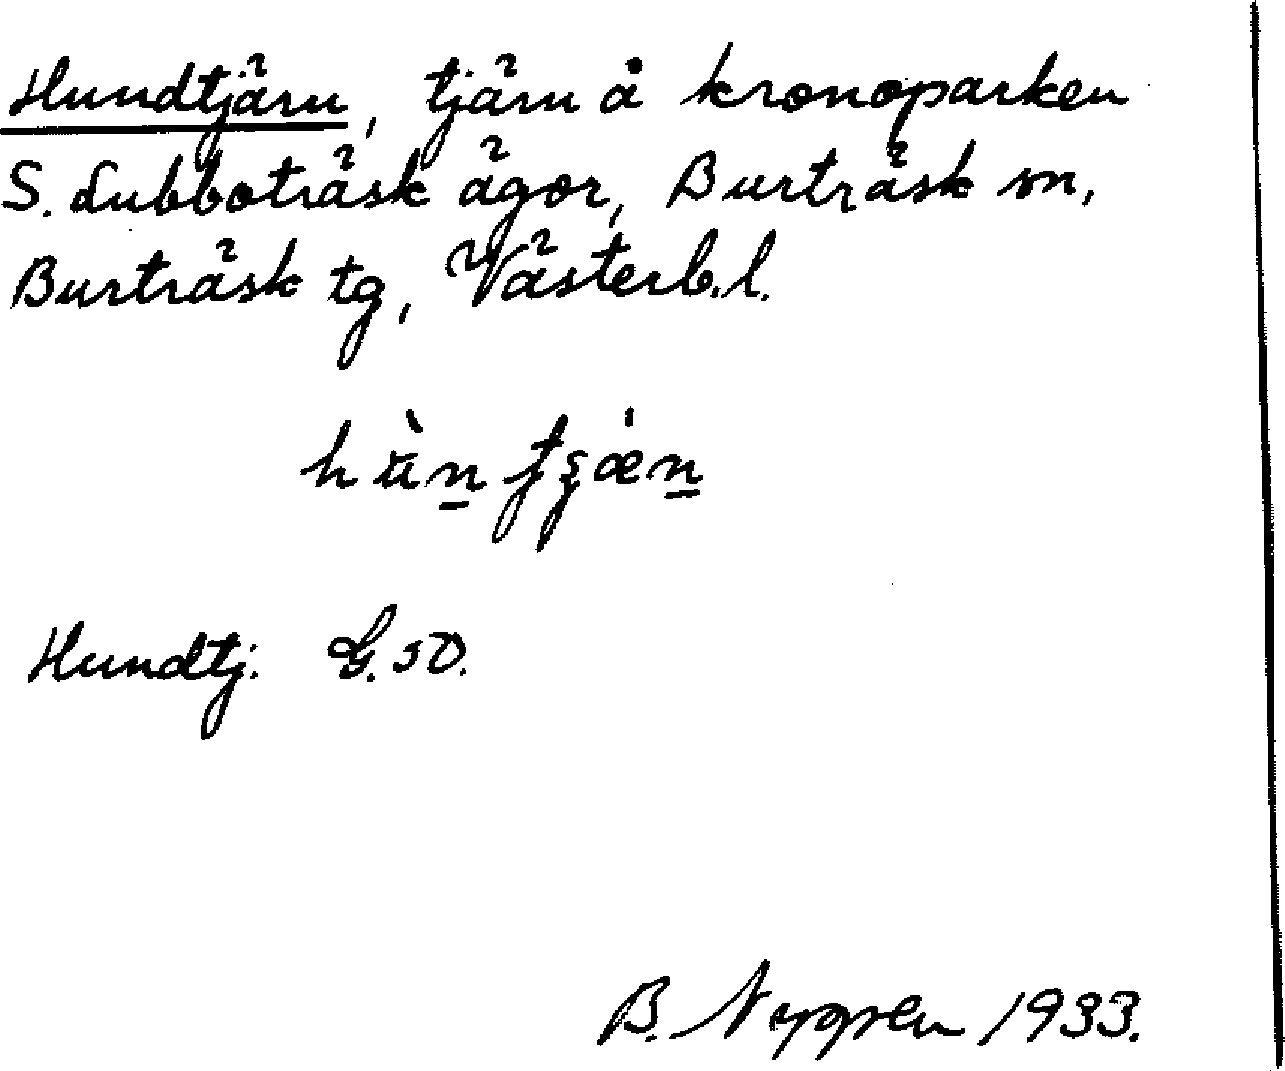 Hundtjärn, tjärn å kronoparken
S. Lubboträsk ägor, Burträsk sn,
Burträsk tg, Västerb.l.
Hundtj. G.50.
B. Nygren 1933.